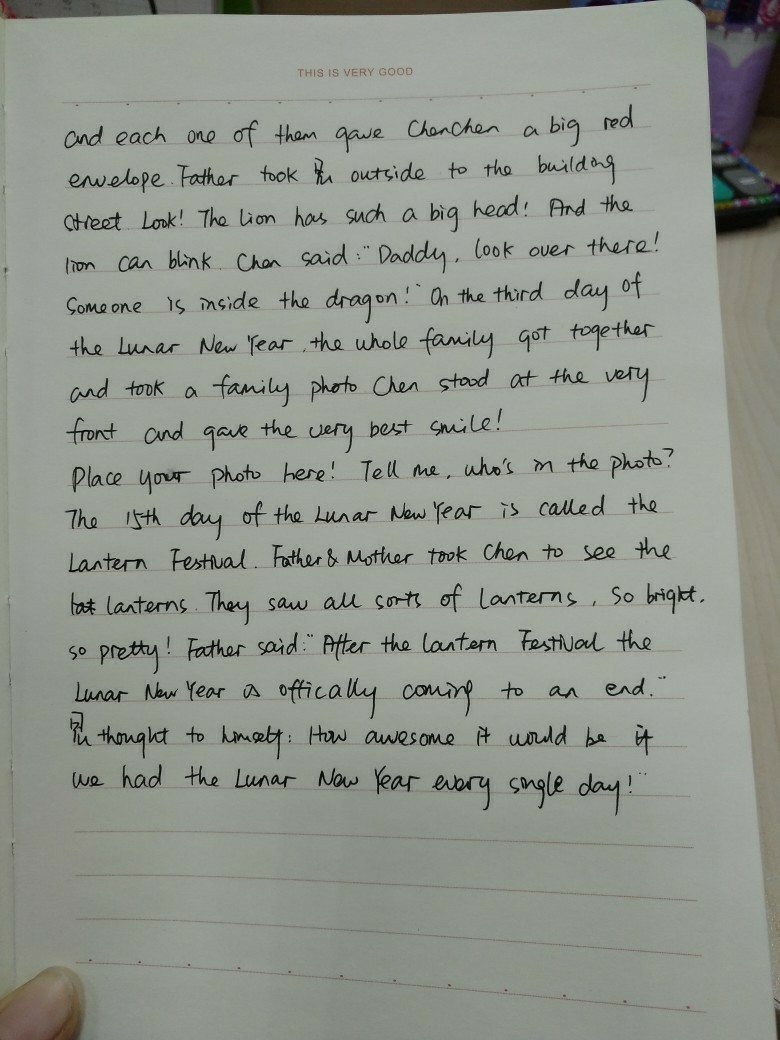 THIS IS VERY GOOD
and each one of them gave ChenChen a big red
envelope. Father took outside to the building
street Look! The lion has such a big head! And the
lion can blink. Chen said: "Daddy, look over there!
Someone is inside the dragon!" On the third day of
the Lunar New Year, the whole family got together
and took a family photo Chen stood at the very
front and gave the very best smile!
Place your photo here! Tell me, who's in the photo?
The 15th day of the Lunar New Year is called the
Lantern Festival. Father & Mother took Chen to see the
lanterns. They saw all sorts of lanterns, So bright,
so pretty! Father said: "After the lantern Festival the
Lunar New Year is offically coming to an end."
thought to himself: How awesome it would be if
we had the Lunar New Year every single day!"